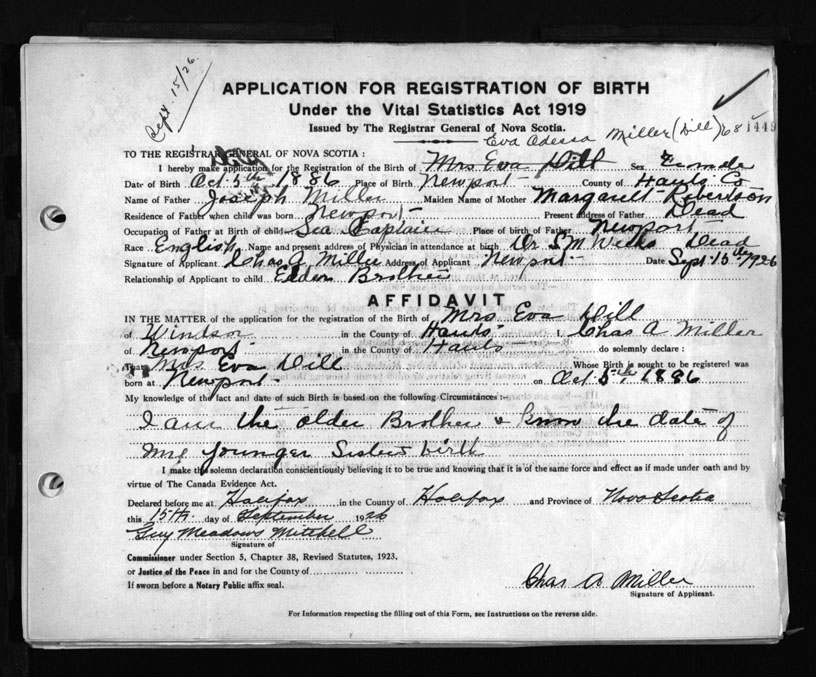 Sept. 15/26.
APPLICATION FOR REGISTRATION OF BIRTH
Under the Vital Statistics Act 1919
Issued by The Registrar General of Nova Scotia.
Eva Odessa Miller (Dill) 68 1449
TO THE REGISTRAR GENERAL OF NOVA SCOTIA :
I hereby make application for the Registration of the Birth of Mrs Eva Dill Sex Female
Date of Birth Oct. 5th 1886 Place of Birth Newport County of Hants Co
Name of Father Joseph Miller Maiden Name of Mother Margarett Robertson
Residence of Father when child was born Newport Present address of Father Dead
Occupation of Father at Birth of child Sea Captain Place of birth of Father Newport
Race English Name and present address of Physician in attendance at birth Dr. S M Weeks Dead
Signature of Applicant Chas A Miller Address of Applicant Newport Date Sept. 15th 1926
Relationship of Applicant to child Elder Brother
AFFIDAVIT
IN THE MATTER of the application for the registration of the Birth of Mrs Eva Dill
of Windsor in the County of Hants I, Chas A Miller
of Newport in the County of Hants do solemnly declare :
That Mrs Eva Dill Whose Birth is sought to be registered was
born at Newport on Oct 5th, 1886
My knowledge of the fact and date of such Birth is based on the following Circumstances :-
I am the older Brother & know the date of
my younger Sisters birth
I make this solemn declaration conscientiously believing it to be true and knowing that it is of the same force and effect as if made under oath and by
virtue of The Canada Evidence Act.
Declared before me at Halifax in the County of Halifax and Province of Nova Scotia
this 15th day of September 1926
Guy Meadows Mitchell
Signature of
Commissioner under Section 5, Chapter 38, Revised Statutes, 1923,
or Justice of the Peace in and for the County of
If sworn before a Notary Public affix seal.
Chas A Miller
Signature of Applicant.
For Information respecting the filling out of this Form, see Instructions on the reverse side.